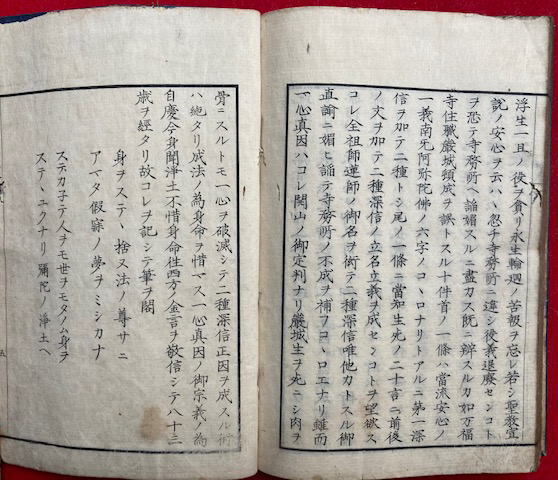 浮生一旦ノ後ヲ貪リ永生輪迴ノ苦報ヲ忘レ若シ聖教宣
説ノ安心ヲ云ハヽ忽チ寺務所ニ違シ後義退廢センコト
ヲ恐テ寺務所ヘ諂媚スルニ盡力ス既ニ辨スルカ如万福
寺住職嚴城頻成ヲ誤トスル十件首ノ一條ハ當流安心ノ
一義南无阿弥陀佛ノ六字ノコヽロナリトアルニ第一深
信ヲ加テ二種トシ尾ノ一條ニ當知生死ノ二十言ニ前後
ノ文ヲ加テ二種深信ノ立名立義ヲ成センコトヲ望欲ス
コレ全祖師蓮師ノ御名ヲ衒テ二種深信唯他力トスル御
直諭ニ媚ヒ諂テ寺務所ノ不成ヲ補フコヽロエナリ雖而
一心真因ハコレ開山ノ御定判ナリ嚴城生ヲ先ニシ肉ヲ
骨ニスルトモ一心ヲ破滅シテ二種深信正因ヲ成スル術
ハ絶タリ成法ノ為身命ヲ惜マス一心真因ノ御宗義ノ為
自慶今身聞浄土不惜身命往西方ノ金言ヲ敬信シテ八十三
歳ヲ經タリ故コレヲ記シテ筆ヲ閣
身ヲステヽ捨又法ノ尊サニ
アマタ假寐ノ夢ヲミシカナ
ステカ子テ人ヲモ世ヲモタノム身ヲ
ステヽユクナリ彌陀ノ浄土ヘ
五